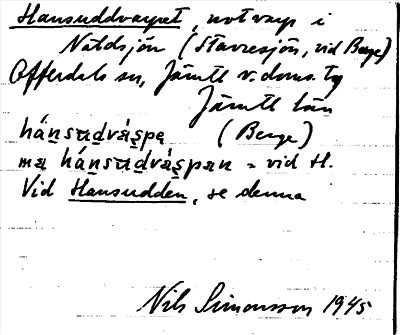 Hansuddvarpet, notvarp i
Nätdsjön (Stavresjön, vid Berge)
Offerdals sn, Jämtl v. doms. tg
Jämtl län
hánsudváspe (Berge)
ma hánsudváspan = vid H.
Vid Hansudden, se denna
Nils Simonsson 1945